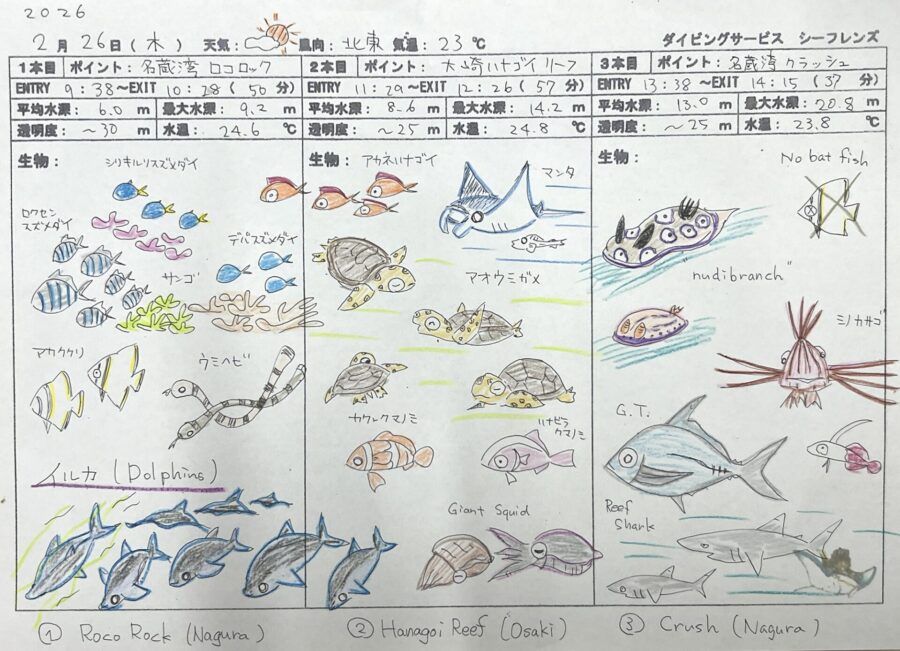 2026
2月26日(木) 天気: 風向:北東 気温:23℃ ダイビングサービス シーフレンズ
1本目 ポイント:名蔵湾 ロコロック
ENTRY 9:38〜EXIT 10:28(50分)
平均水深:6.0m 最大水深:9.2m
透明度:〜30m 水温:24.6℃
生物:
シリキルリスズメダイ
ロクセン
スズメダイ
デバスズメダイ
サンゴ
アカククリ
ウミヘビ
イルカ (Dolphins)
① Roco Rock (Nagura)
2本目 ポイント:大崎ハナゴイリーフ
ENTRY 11:29〜EXIT 12:26(57分)
平均水深:8.6m 最大水深:14.2m
透明度:〜25m 水温:24.8℃
生物:
アカネハナゴイ
マンタ
アオウミガメ
カクレクマノミ
ハナビラ
クマノミ
Giant Squid
② Hanagoi Reef (Osaki)
3本目 ポイント:名蔵湾 クラッシュ
ENTRY 13:38〜EXIT 14:15(37分)
平均水深:13.0m 最大水深:20.8m
透明度:〜25m 水温:23.8℃
生物:
No bat fish
nudibranch"
ミノカサゴ
G.T.
Reef
Shark
③ Crush (Nagura)